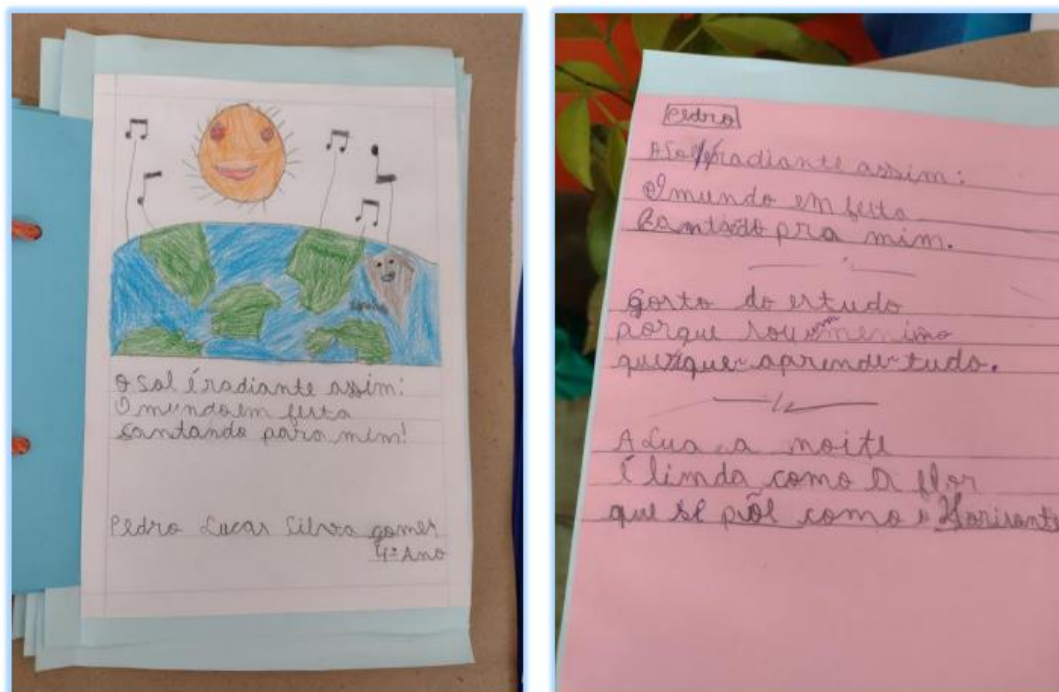 O Sol é radiante assim:
O mundo em festa
Cantando para mim!
Pedro Lucas Silva gomes
4º Ano
Pedro
O Sol é radiante assim:
O mundo em festa
Cantado pra mim.
Gosto do estudo
porque sou um menino
que quer aprender tudo.
A Lua a noite
É linda como a flor
que se põe como o Horisonte